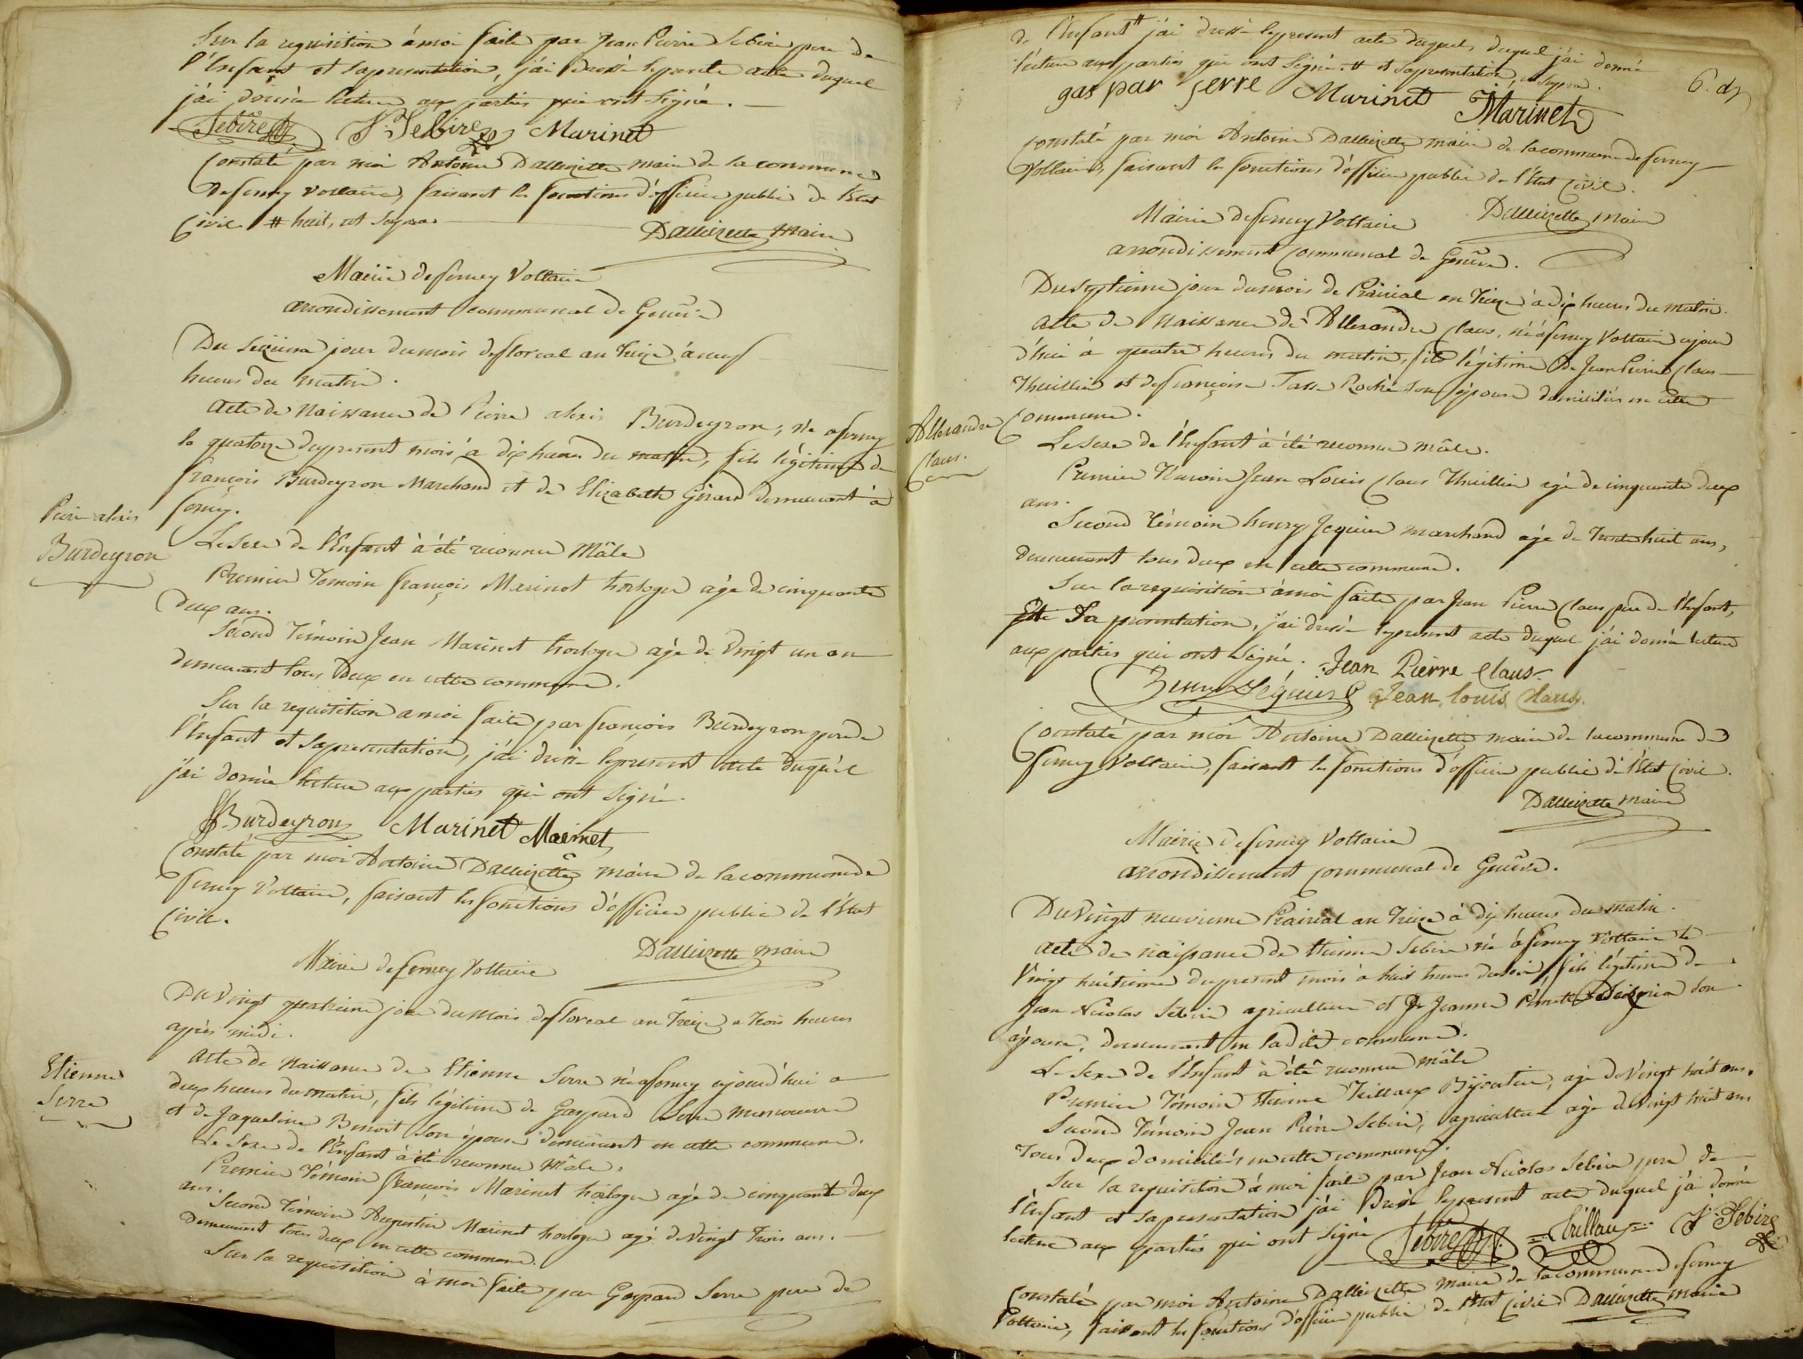 Sur la requisition à moi faite par Jean Pierre Sebire pere de
l'Enfant et sa presentation, j'ai dressé le present acte duquel
j'ai donné lecture aux parties qui ont signé.
Sebire J. Sebire Marinet
Constaté par moi Antoine Dallizette maire de la commune
de ferney voltaire, faisant les fonctions d'officier public de l'Etat
Civil # huit, ut supra
Dallizette maire
Mairie de ferney Voltaire
arrondissement communal de Genève
Du seizieme jour du mois de floreal an treize à neuf
heures du matin.
Acte de Naissance de Pierre alexis Burdeyron, né a ferney
le quatorze du present mois à dix heures du matin, fils légitime de
françois Burdeyron Marchand et de Elizabeth Girard demeurant à
ferney.
Pierre alexis
Burdeyron
Le Sexe de l'Enfant à été reconnu Mâle
Premier Temoin françois Marinet horloger agé de cinquante
deux ans.
Second Témoin Jean Marinet horloger agé de Vingt un an
demeurant tous Deux en cette commune.
Sur la requisition a moi faite par francois Burdeyron pere de
l'Enfant et sa presentation, j'ai dressé le present acte duquel
j'ai donné lecture aux parties qui ont signé.
Burdeyron Marinet Marinet
Constaté par moi Antoine Dallizette maire de la commune de
ferney Voltaire, faisant les fonctions d'officier public de l'Etat
Civil.
Dallizette maire
Mairie de ferney Voltaire
Du Vingt quatrieme jour du mois de floreal an treize a trois heures
après midi.
Etienne
Serre
Acte de Naissance de Etienne Serre né a ferney ajourd'hui a
deux heures du matin, fils légitime de Gaspard Serre
et de Jaqueline Benoit son épouse demeurant en cette commune.
Le Sexe de l'Enfant à été reconnu Mâle.
Premier Témoin francois Marinet horloger agé de cinquante deux
ans.
Second Témoin Augustin Marinet horloger agé de Vingt trois ans.
Demeurant tous deux en cette commune.
Sur la requisition à moi faite par Gaspard Serre pere de
de l'Enfant # j'ai dressé le present acte duquel duquel j'ai donné
lecture aux parties qui ont signé. # et sa presentation, ut supra.
gaspar serre Marinet Marinet
Constaté par moi Antoine Dallizette maire de la commune de ferney
Voltaire, faisant les fonctions d'officier public de l'Etat Civil.
Dallizette maire
Mairie de ferney Voltaire
arrondissement communal de Genève.
Du septieme jour du mois de Prairial an treize à dix heures du matin.
Acte de Naissance de Allexandre Claus, né à ferney Voltaire ajour
d'hui à quatre heures du matin, fils légitime de Jean Pierre Claus
Thuillier et de françoise Roche son épouse domiciliés en cette
Commune.
Allexandre
Claus.
Le Sexe de l'Enfant à été reconnu mâle.
Premier Temoin Jean Louis Claus Thuillier agé de cinquante deux
ans.
Second Témoin henry Jequier marchand agé de trente huit ans,
demeurant tous deux en cette commune.
Sur la requisition à moi faite par Jean Pierre Claus pere de l'Enfant,
Sa presentation, j'ai dressé le present acte duquel j'ai donné lecture
aux parties qui ont signé. Jean Pierre Claus
Henry Jéquier Jean Louis Claus
Constaté par moi Antoine Dallizette maire de la commune de
ferney Voltaire, faisant les fonctions d'officier public de l'Etat Civil.
Dallizette maire
Mairie de ferney Voltaire
arrondissement communal de Genève.
Du Vingt neuvieme Prairial an treize à dix heures du matin.
Acte de naissance de Etienne Sebire né à ferney Voltaire le
Vingt huitieme du present mois à huit heures du soir, fils légitime de
Jean Nicolas Sebire agriculteur et de Jeanne son
épouse, demeurant en la dite commune.
Le Sexe de l'Enfant à été reconnu mâle
Premier Témoin Etienne Bijoutier, agé de Vingt huit ans.
Second Témoin Jean Pierre Sebire, agriculteur agé de Vingt huit ans
tous deux domiciliés en cette commune.
Sur la requisition à moi faite par Jean Nicolas Sebire pere de
l'Enfant et sa presentation j'ai Dressé le present acte duquel j'ai donné
lecture aux parties qui ont signé Sebire J. Sebire
Constaté par moi Antoine Dallizette maire de la commune de ferney
Voltaire, faisant les fonctions d'officier public de l'Etat Civil Dallizette maire